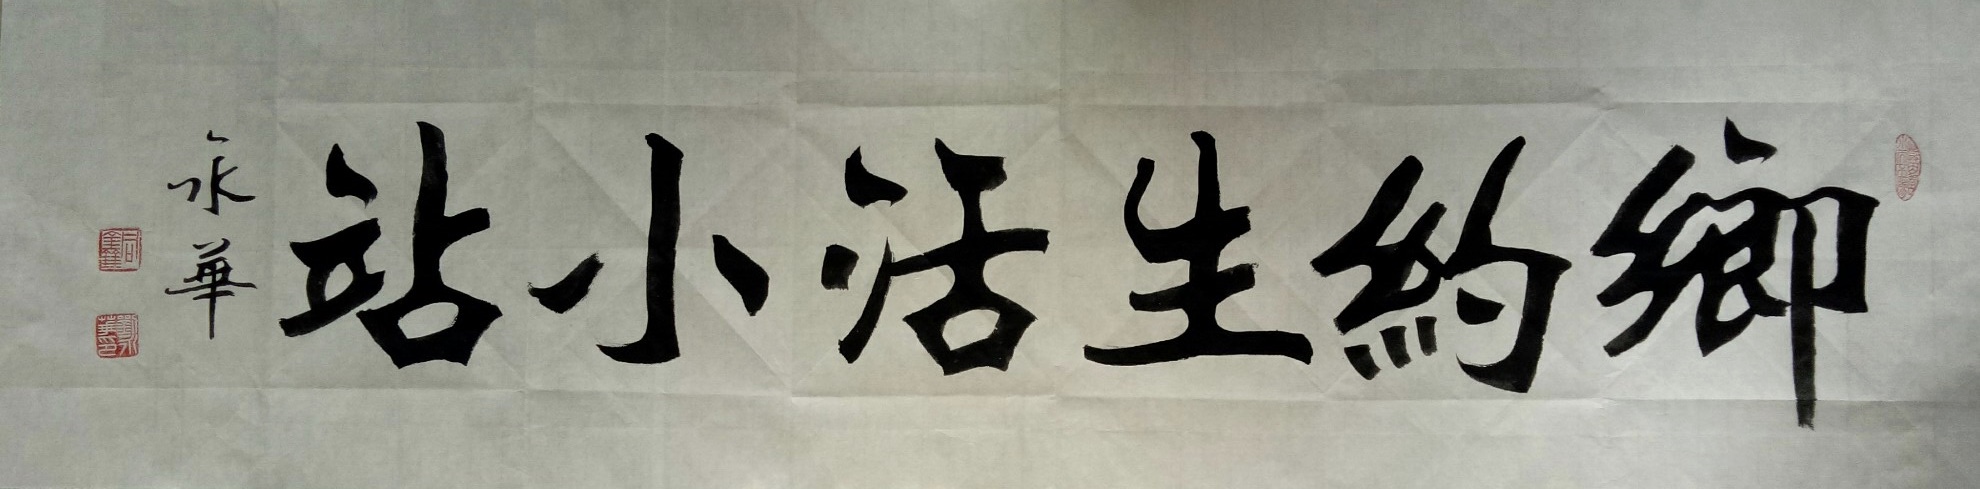 鄉約生活小站
永華